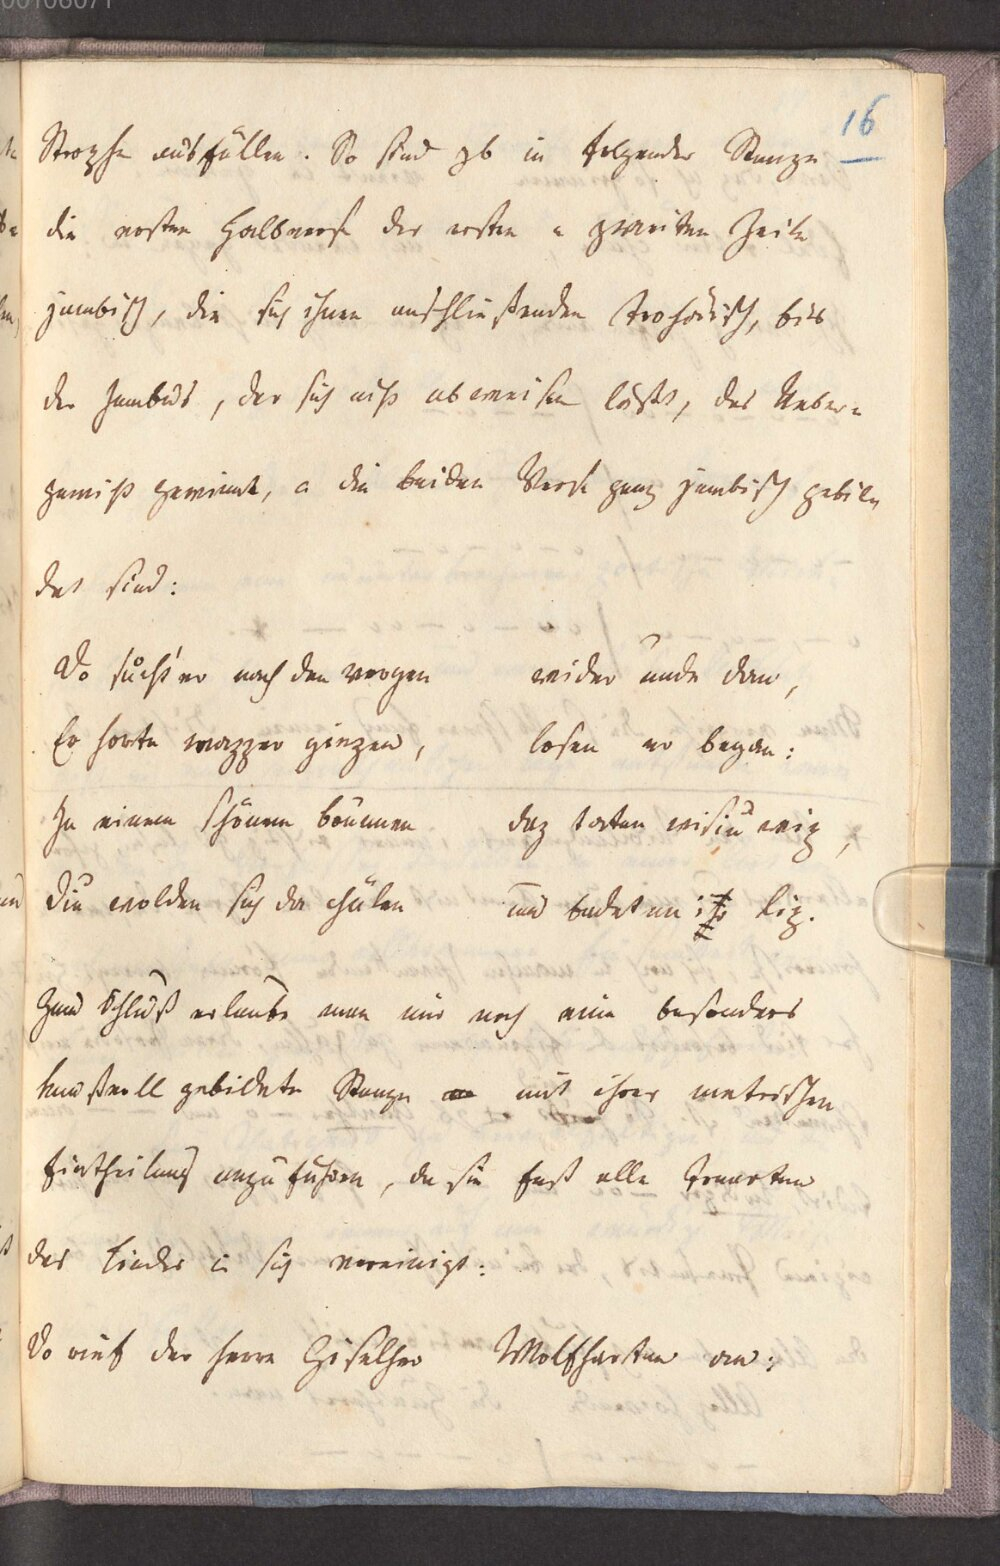 00106071
16
Strophe ausfüllen. So sind zb in folgender Stanze
die ersten Halbverse der ersten u zweiten Zeile
jambisch, die sich ihnen anschließenden trochäisch, bis
der Jambus, der sich nicht abweisen läßt, das Ueber=
gewicht gewinnt, u die beiden Verse ganz jambisch gebil=
det sind:
Do sůcht' er nach den vergen wider unde dan,
Er horte wazzer giezen, losen er began:
In einem schönen brunnen daz taten wisiu wip,
Diu wolden sich da chülen und badeten ir lip.
Zum Schluß erlaube man mir noch eine besonders
kunstvoll gebildete Stanze mit ihrer metrischen
Eintheilung anzuführen, da sie fast alle Tonarten
des Liedes in sich vereinigt:
Do rief der herre Giselher Wolfharten an: